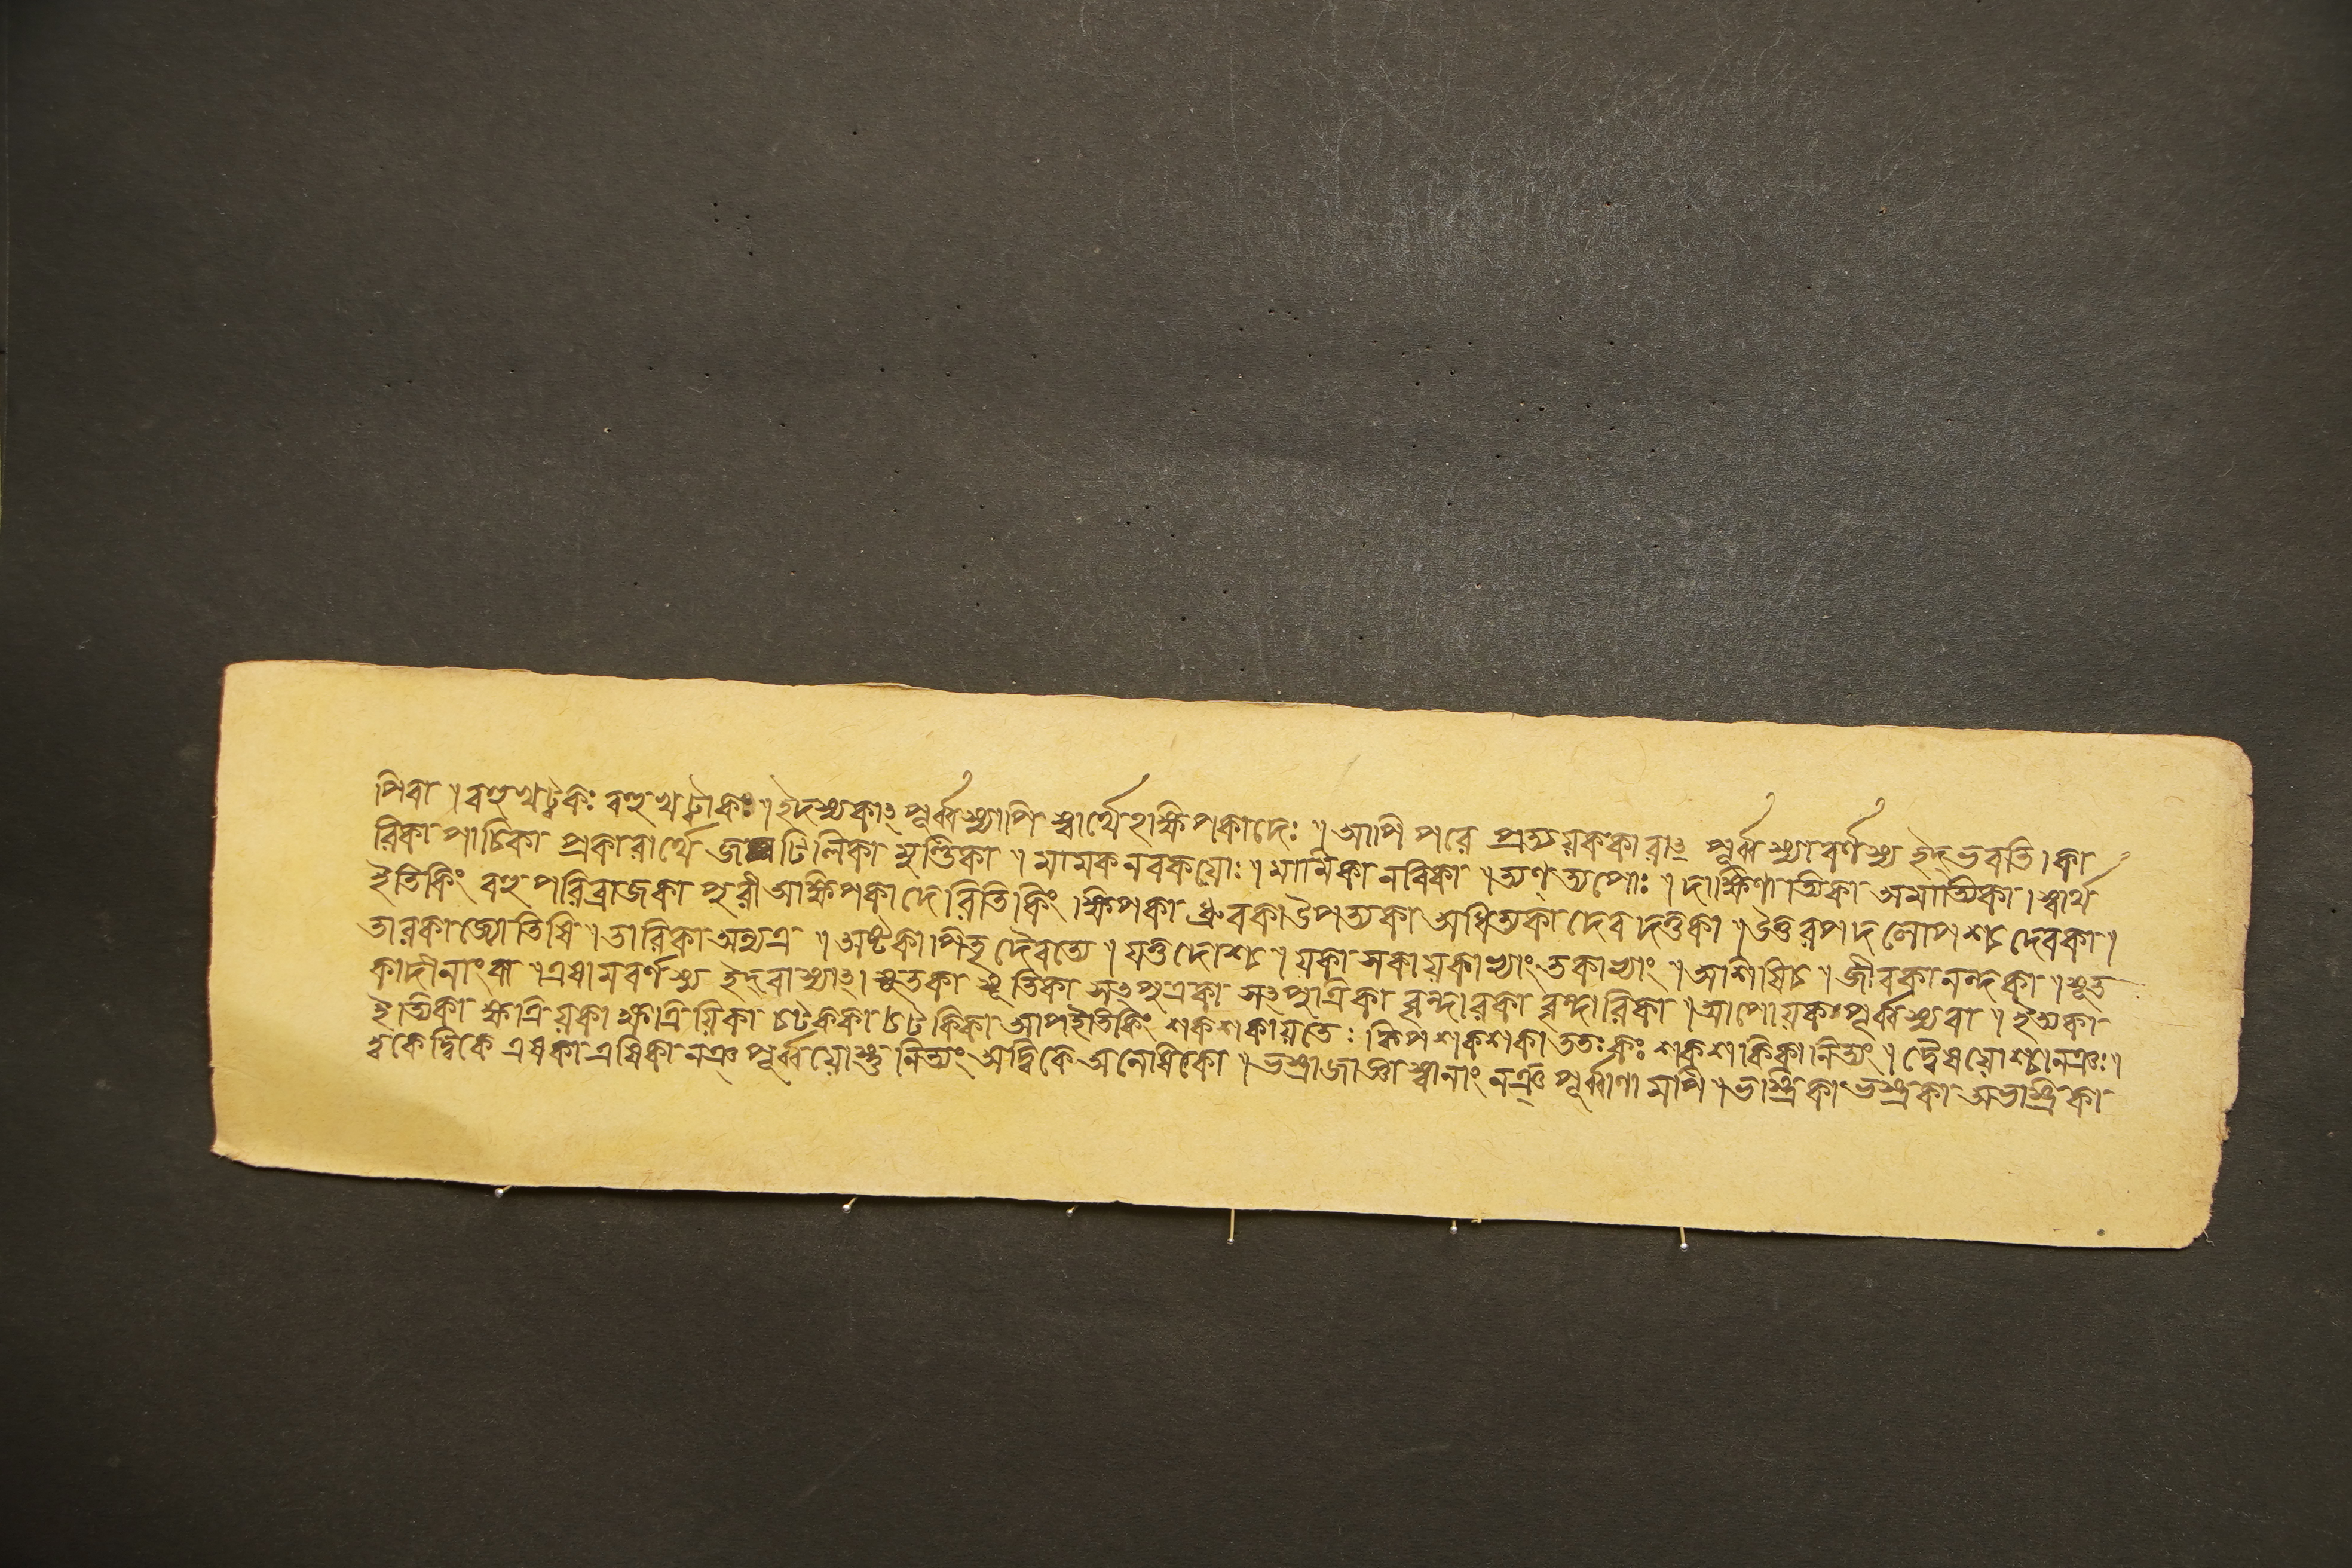 পিবা ৷ বহুখট্বকঃ বহুখট্বাকঃ ৷ ইদস্যকাৎ পূর্ব্বস্যাপি স্বার্থেহক্ষিপকাদেঃ ৷ আপি পরে প্রত্যয়ককারাৎ পূর্ব্বস্যাবর্ণস্য ইদ্ ভবতি ৷ কা
রিকা পাচিকা প্রকারার্থে জটিলিকা মুণ্ডিকা ৷ মামকনবকয়োঃ ৷ মামিকা নবিকা ৷ ত্যণ্ ত্যপোঃ ৷ দাক্ষিণাত্যিকা অমাত্যিকা ৷ স্বার্থ
ইতিকিং বহুপরিব্রাজকা পুরী অক্ষিপকাদেরিতিকিং ৷ ক্ষিপকা ধ্রুবকা উপত্যকা অধিত্যকা দেবদত্তকা ৷ উত্তরপদলোপশ্চ দেবকা ৷
তারকা জ্যোতিষি ৷ তারিকা অন্যত্র ৷ অষ্টকা পিতৃদৈবত্যে ৷ যত্তদোশ্চ ৷ যকা সকা যকাখ্যাং তকাখ্যাং ৷ আশিষিচ ৷ জীবকা নন্দকা ৷ সূত
কাদীনাংবা ৷ এষামবর্ণস্য ইদ্ বা স্যাৎ ৷ সুতকা সূতিকা সৎপুত্রকা সৎপুত্রিকা বৃন্দারকা বৃন্দারিকা ৷ আপোযকপূর্ব্বস্যবা ৷ ইভ্যকা
ইভ্যিকা ক্ষত্রিয়কা ক্ষত্রিয়িকা চটককা চটকিকা আপইতিকিং শকশকায়তেঃ ক্বিপ্ শকশকা ততঃ কঃ শকশকিকা নিত্যং ৷ দ্বৈষয়োশ্চানঞঃ ৷
দ্বকে দ্বিকে এষকা এষিকা নঞ্ পূর্ব্বয়োস্তু নিত্যং অদ্বিকে অনেষিকা ৷ ভস্ত্রাজাজ্ঞাস্বানাং নঞ্ পূর্ব্বাণামপি ৷ ভস্ত্রিকা ভস্ত্রকা অভস্ত্রিকা